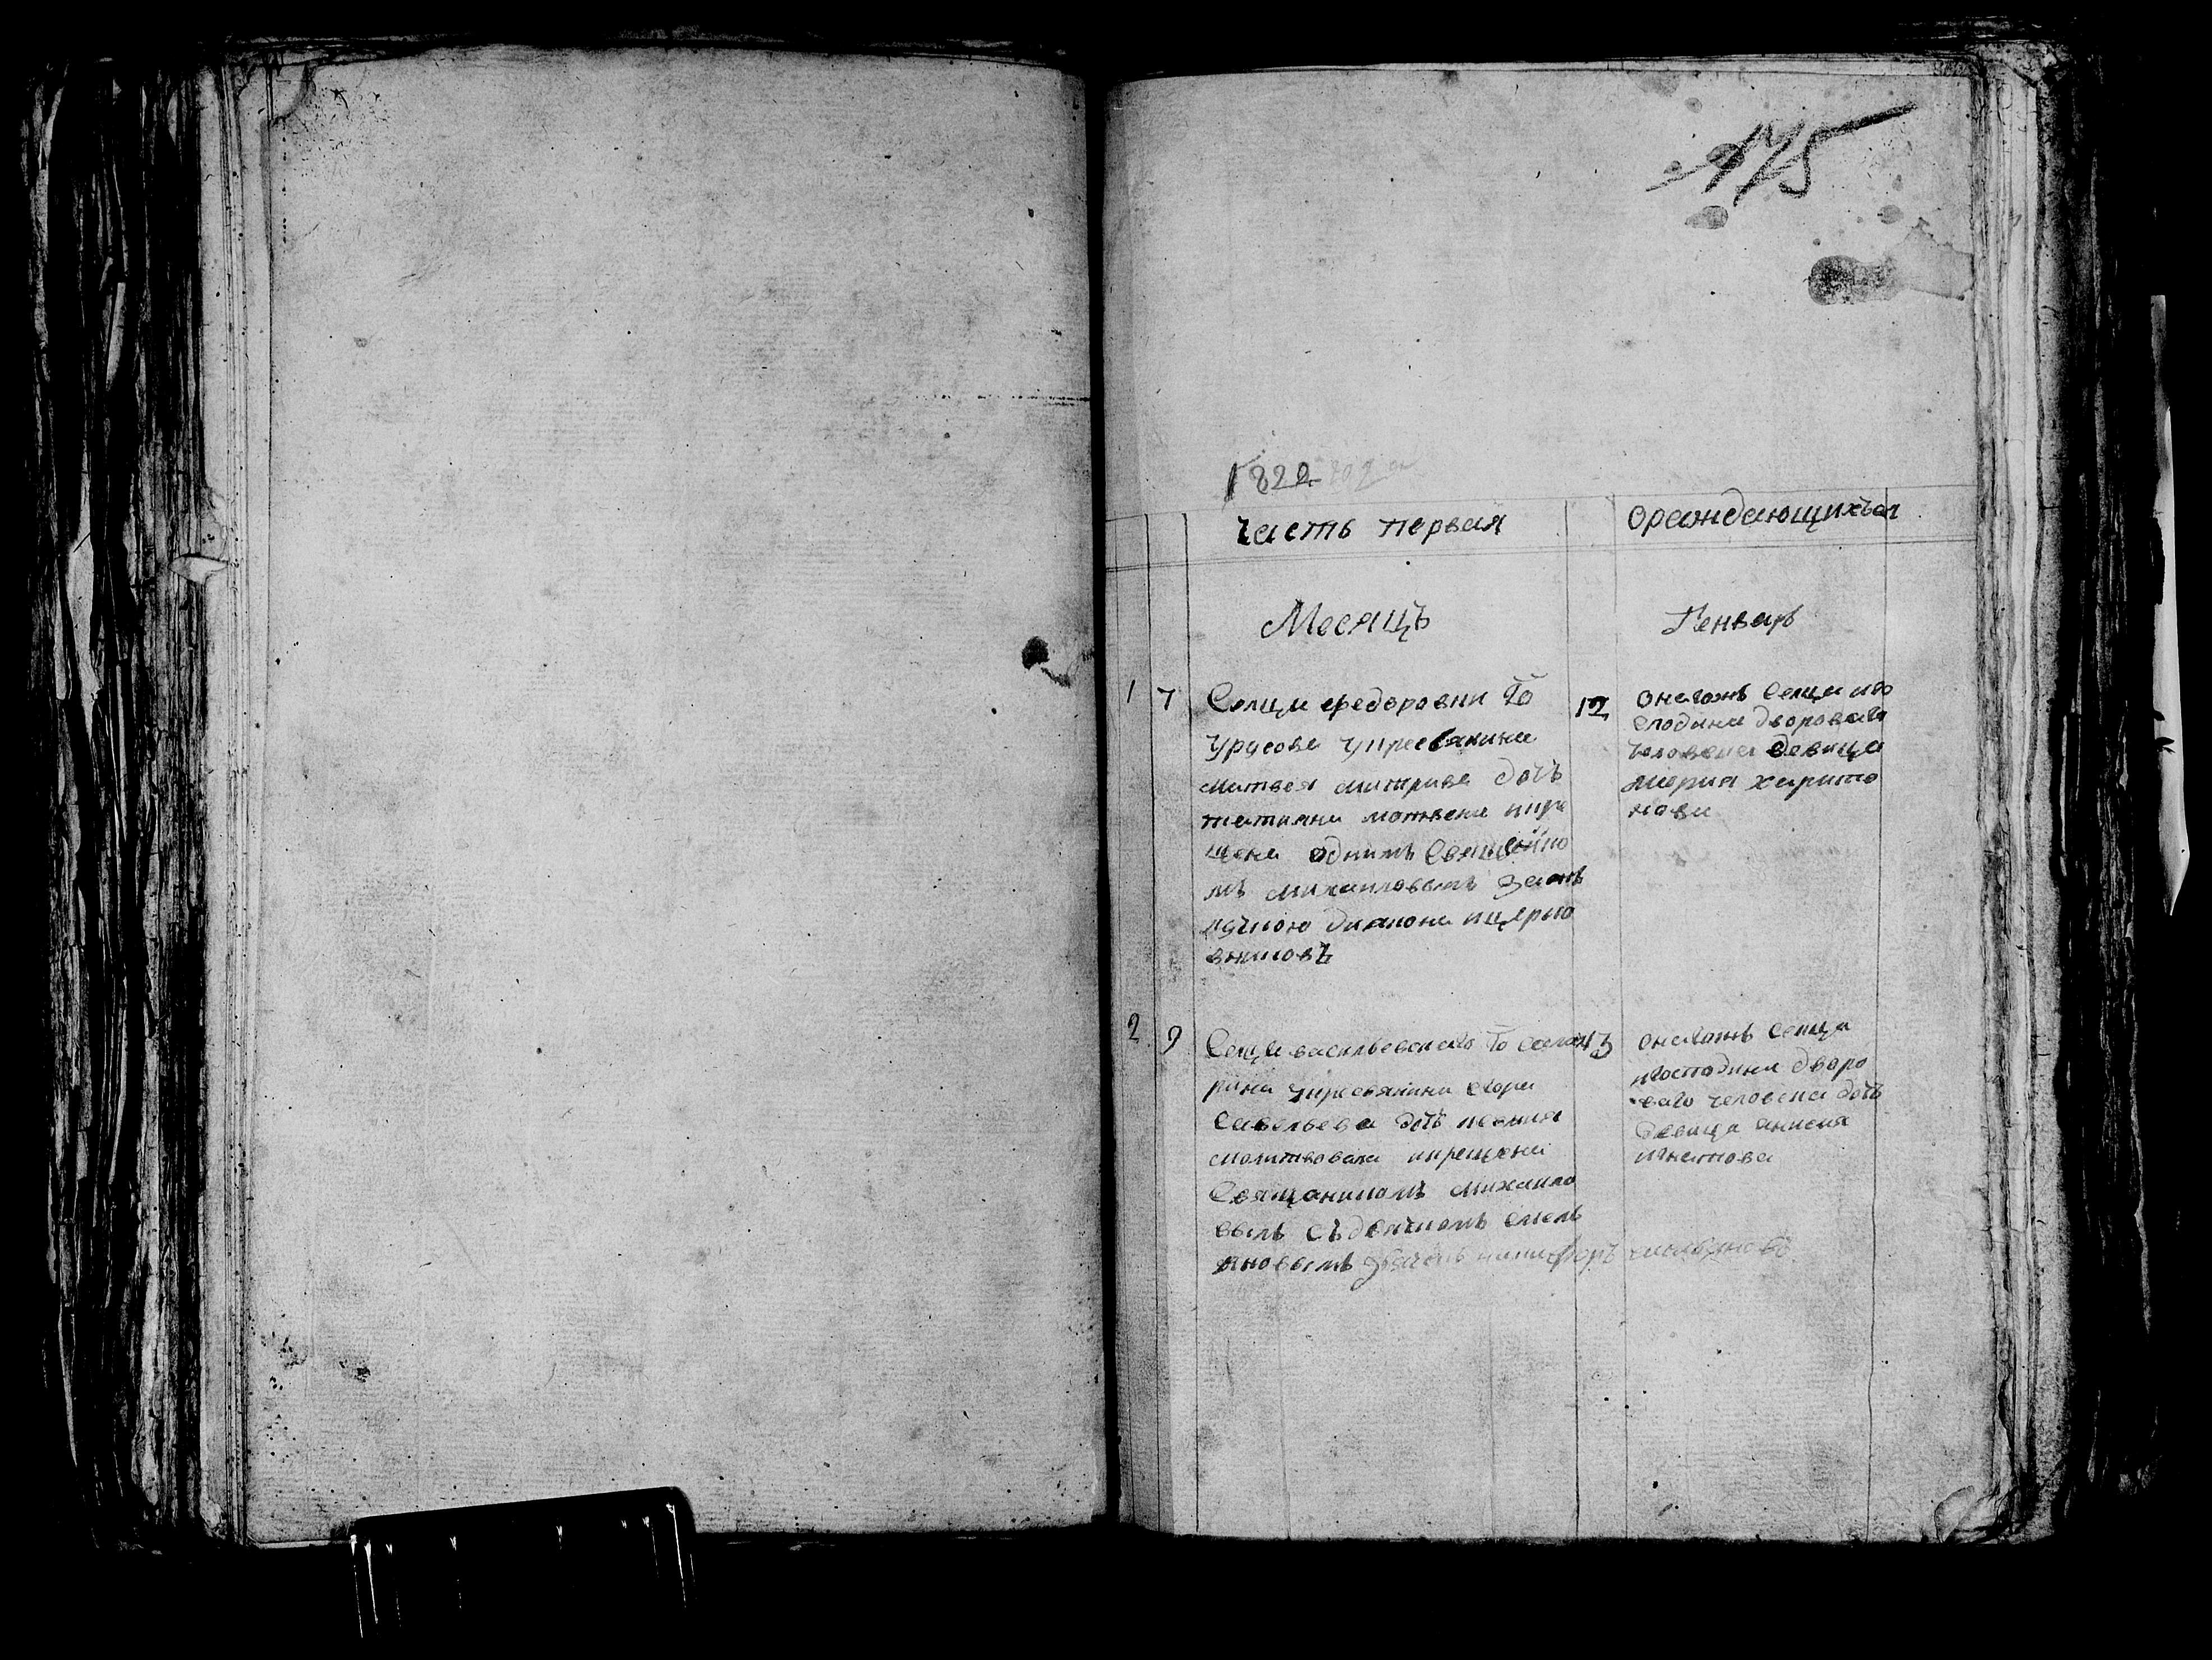 175
1822 года
часть первая
ораждающихъся
Месяцъ
Генварь
1 7
Селца федоровки Го
Урусова укресьянина
матвея митрива дочь
татияна матвева кре
щена однимъ Священико
мъ михаиловымъ заотъ
лучкою диакона ицерко
вниковъ
12
Онагожъ Селца иго
сподина дворовага
человека девица
мария харито
нова
2 9
Селца васильевскаго Го
рина укресьянина
савельева дочь
молитвована икрещена
Священикомъ михаило
вымъ съ дьячкомъ емель
яновымъ
13
онагожъ Селца
игосподина дворо
ваго человека дочь
девица анисия
игнатова